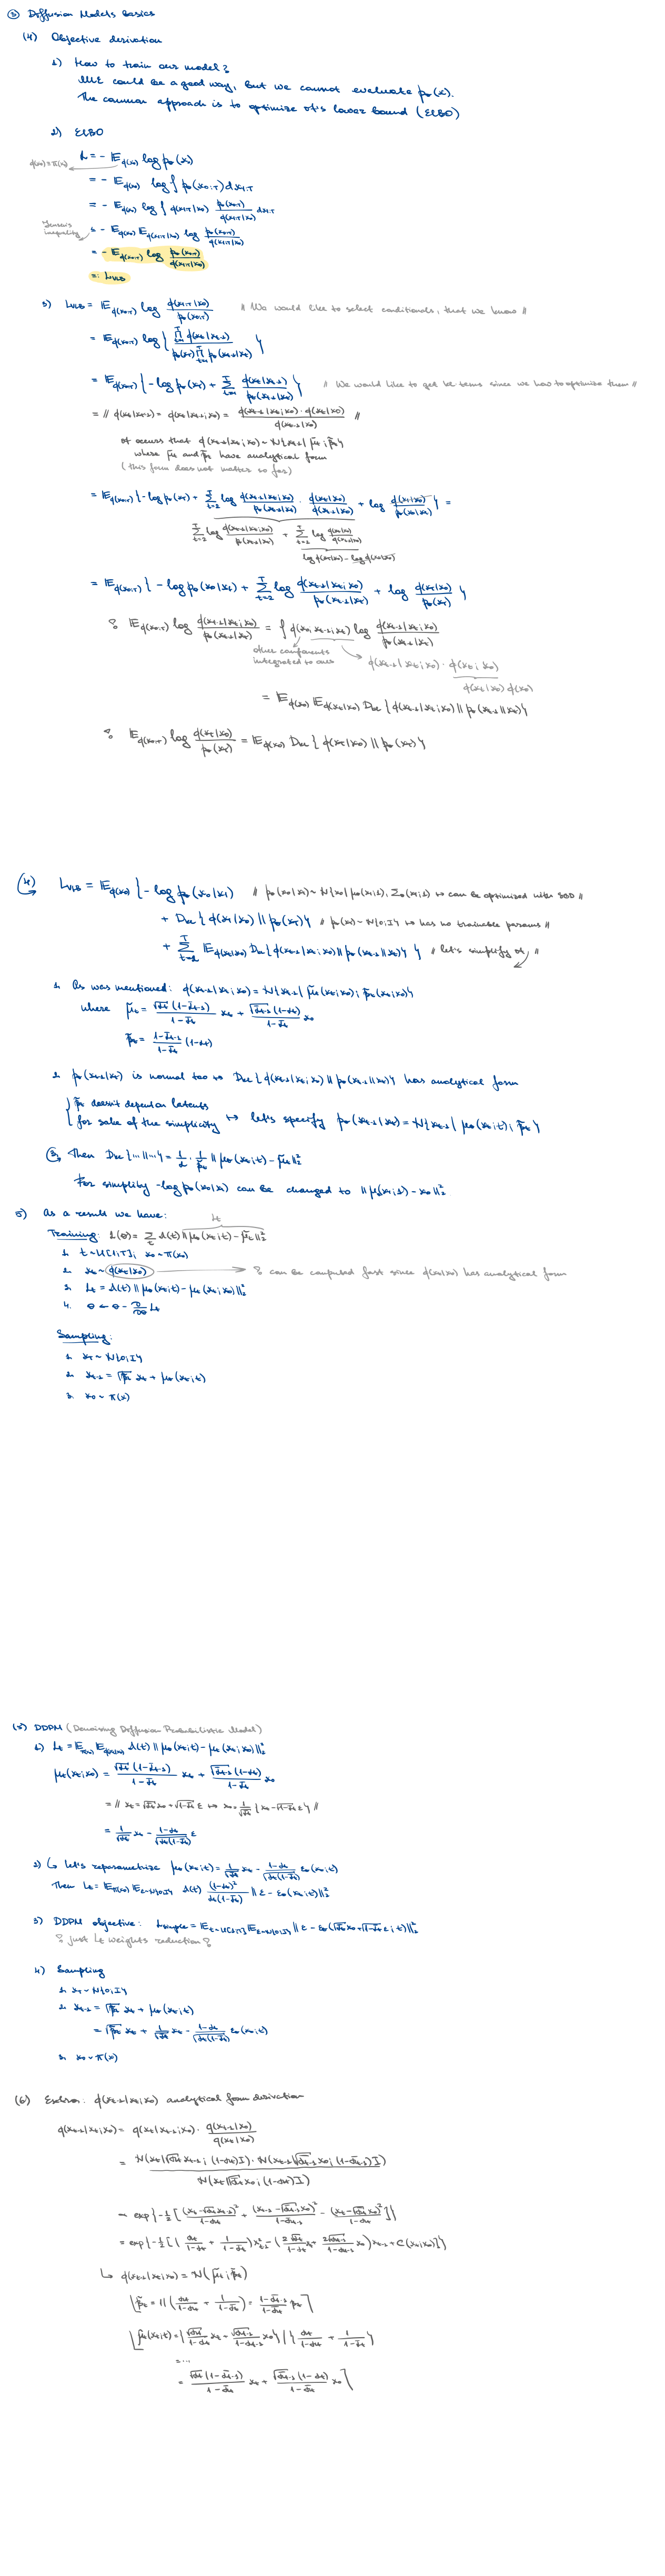 ③ Diffusion Models basics
(4) Objective derivation
1) How to train our model?
MLE could be a good way, but we cannot evaluate pθ(x).
The common approach is to optimize it's lower bound (ELBO)
2) ELBO
q(x₀)=π(x₀)
L = - E_q(x₀) log pθ(x₀)
= - E_q(x₀) log ∫ pθ(x₀:T) dx₁:T
= - E_q(x₀) log ∫ q(x₁:T|x₀) pθ(x₀:T)/q(x₁:T|x₀) dx₁:T
Jensen's inequality
≤ - E_q(x₀) E_q(x₁:T|x₀) log pθ(x₀:T)/q(x₁:T|x₀)
= - E_q(x₀:T) log pθ(x₀:T)/q(x₁:T|x₀)
=: L_VLB
3) L_VLB = E_q(x₀:T) log q(x₁:T|x₀)/pθ(x₀:T) // We would like to select conditionals, that we know //
= E_q(x₀:T) log { ∏ q(xt|xt-1) / pθ(xT) ∏ pθ(xt-1|xt) }
= E_q(x₀:T) { - log pθ(xT) + Σ q(xt|xt-1)/pθ(xt-1|xt) } // We would like to get KL terms since we how to optimize them //
= // q(xt|xt-1) = q(xt|xt-1; x₀) = q(xt-1|xt; x₀) · q(xt|x₀) / q(xt-1|x₀) //
it occurs that q(xt-1|xt; x₀) ~ N{xt-1| μ̃t; β̃t}
where μ̃t and β̃t have analytical form
(this form does not matter so far)
= E_q(x₀:T) { - log pθ(xT) + Σ_{t=2}^T log q(xt-1|xt; x₀)/pθ(xt-1|xt) · q(xt|x₀)/q(xt-1|x₀) + log q(x₁|x₀)/pθ(x₀|x₁) } =
Σ_{t=2}^T log q(xt-1|xt; x₀)/pθ(xt-1|xt) + Σ_{t=2}^T log q(xt|x₀)/q(xt-1|x₀)
log q(xT|x₀) - log q(x₁|x₀)
= E_q(x₀:T) { - log pθ(x₀|x₁) + Σ_{t=2}^T log q(xt-1|xt; x₀)/pθ(xt-1|xt) + log q(xT|x₀)/pθ(xT) }
E_q(x₀:T) log q(xt-1|xt; x₀)/pθ(xt-1|xt) = ∫ q(x₀; xt-1; xt) log q(xt-1|xt; x₀)/pθ(xt-1|xt)
other components integrated to ones
q(xt-1|xt; x₀) · q(xt; x₀)
q(xt|x₀) q(x₀)
= E_q(x₀) E_q(xt|x₀) D_KL { q(xt-1|xt; x₀) || pθ(xt-1||xt) }
E_q(x₀:T) log q(xT|x₀)/pθ(xT) = E_q(x₀) D_KL { q(xT|x₀) || pθ(xT) }
4) L_VLB = E_q(x₀) { - log pθ(x₀|x₁) // pθ(x₀|x₁) ~ N{x₀| μθ(x₁; 1), Σθ(x₁; 1) ↦ can be optimized with SGD //
+ D_KL { q(xT|x₀) || pθ(xT) } // pθ(xT) ~ N{0; I} ↦ has no trainable params //
+ Σ_{t=2}^T E_q(xt|x₀) D_KL { q(xt-1|xt; x₀) || pθ(xt-1||xt) } } // let's simplify it //
1. As was mentioned: q(xt-1|xt; x₀) = N{xt-1| μ̃t(xt; x₀); β̃t(xt; x₀)}
where μ̃t = √αt (1-ᾱt-1)/(1-ᾱt) xt + √ᾱt-1 (1-αt)/(1-ᾱt) x₀
β̃t = (1-ᾱt-1)/(1-ᾱt) (1-αt)
2. pθ(xt-1|xt) is normal too ↦ D_KL { q(xt-1|xt; x₀) || pθ(xt-1||xt) } has analytical form
β̃t doesn't depend on latents
for sake of the simplicity ↦ let's specify pθ(xt-1|xt) = N{xt-1| μθ(xt; t); β̃t}
3. Then D_KL {...||...} = 1/2 · 1/β̃t || μθ(xt; t) - μ̃t ||²₂
For simplify -log pθ(x₀|x₁) can be changed to || μθ(x₁; 1) - x₀ ||²₂
5) As a result we have:
Lt
Training: L(θ) = Σ_t λ(t) || μθ(xt; t) - μ̃t ||²₂
1. t ~ U[1; T]; x₀ ~ π(x₀)
2. xt ~ q(xt|x₀) → can be computed fast since q(xt|x₀) has analytical form
3. Lt = λ(t) || μθ(xt; t) - μt(xt; x₀) ||²₂
4. θ ← θ - ∂/∂θ Lt
Sampling:
1. xT ~ N{0; I}
2. xt-1 = √β̃t xt + μθ(xt; t)
3. x₀ ~ π(x)
(5) DDPM (Denoising Diffusion Probabilistic Model)
1) Lt = E_π(x₀) E_q(xt|x₀) λ(t) || μθ(xt; t) - μt(xt; x₀) ||²₂
μt(xt; x₀) = √αt (1-ᾱt-1)/(1-ᾱt) xt + √ᾱt-1 (1-αt)/(1-ᾱt) x₀
= // xt = √ᾱt x₀ + √1-ᾱt ε ↦ x₀ = 1/√ᾱt { x₀ - √1-ᾱt ε } //
= 1/√αt xt - (1-αt)/√αt(1-ᾱt) ε
2) ↳ Let's reparametrize μθ(xt; t) = 1/√αt xt - (1-αt)/√αt(1-ᾱt) εθ(xt; t)
Then Lt = E_π(x₀) E_ε~N{0;I} λ(t) (1-αt)²/αt(1-ᾱt) || ε - εθ(xt; t) ||²₂
3) DDPM objective: L_simple = E_t~U[1;T] E_ε~N{0;I} || ε - εθ(√ᾱt x₀ + √1-ᾱt ε; t) ||²₂
just Lt weights reduction
4) Sampling
1. xT ~ N{0; I}
2. xt-1 = √β̃t xt + μθ(xt; t)
= √β̃t xt + 1/√αt xt - (1-αt)/√αt(1-ᾱt) εθ(xt; t)
3. x₀ ~ π(x)
(6) q(xt-1|xt; x₀) analytical form derivation
q(xt-1|xt; x₀) = q(xt|xt-1; x₀) · q(xt-1|x₀)/q(xt|x₀)
= N(xt|√αt xt-1; (1-αt)I) · N(xt-1|√ᾱt-1 x₀; (1-ᾱt-1)I) / N(xt|√ᾱt x₀; (1-ᾱt)I)
~ exp{ -1/2 [ (xt-√αt xt-1)²/(1-αt) + (xt-1-√ᾱt-1 x₀)²/(1-ᾱt-1) - (xt-√ᾱt x₀)²/(1-ᾱt) ] }
= exp{ -1/2 [ ( αt/(1-αt) + 1/(1-ᾱt) ) x²t-1 - ( 2√αt/(1-αt) xt + 2√ᾱt-1/(1-ᾱt-1) x₀ ) xt-1 + C(xt; x₀) ] }
↳ q(xt-1|xt; x₀) = N( μ̃t; β̃t )
β̃t = 1/( αt/(1-αt) + 1/(1-ᾱt) ) = (1-ᾱt-1)/(1-ᾱt) βt
μ̃t(xt; t) = ( √αt/(1-αt) xt + √ᾱt-1/(1-ᾱt-1) x₀ ) / { αt/(1-αt) + 1/(1-ᾱt) }
=...
= √αt (1-ᾱt-1)/(1-ᾱt) xt + √ᾱt-1 (1-αt)/(1-ᾱt) x₀